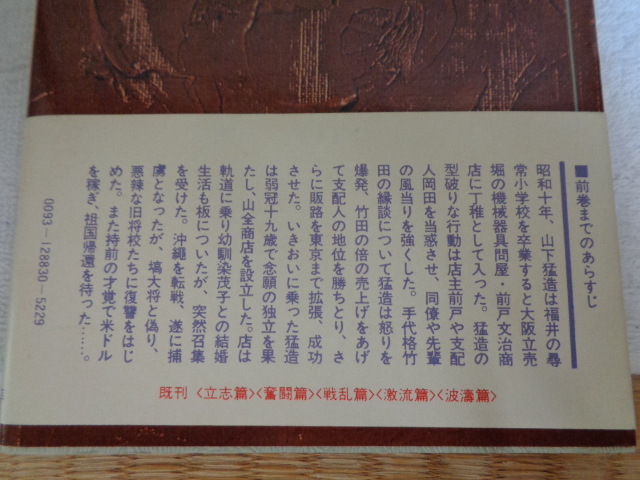 ■前巻までのあらすじ
昭和十年、山下猛造は福井の尋
常小学校を卒業すると大阪立売
堀の機械器具問屋・前戸文治商
店に丁稚として入った。猛造の
型破りな行動は店主前戸や支配
人岡田を当惑させ、同僚や先輩
の風当りを強くした。手代格竹
田の縁談について猛造は怒りを
爆発、竹田の倍の売上げをあげ
て支配人の地位を勝ちとり、さ
らに販路を東京まで拡張、成功
させた。いきおいに乗った猛造
は弱冠十九歳で念願の独立を果
たし、山全商店を設立した。店は
軌道に乗り幼馴染茂子との結婚
生活も板についたが、突然召集
を受けた。沖縄を転戦、遂に捕
虜となったが、塙大将と偽り、
悪辣な旧将校たちに復讐をはじ
めた。また持前の才覚で米ドル
を稼ぎ、祖国帰還を待った……。
0093-128830-5229
既刊〈立志篇〉〈奮闘篇〉〈戦乱篇〉〈激流篇〉〈波濤篇〉